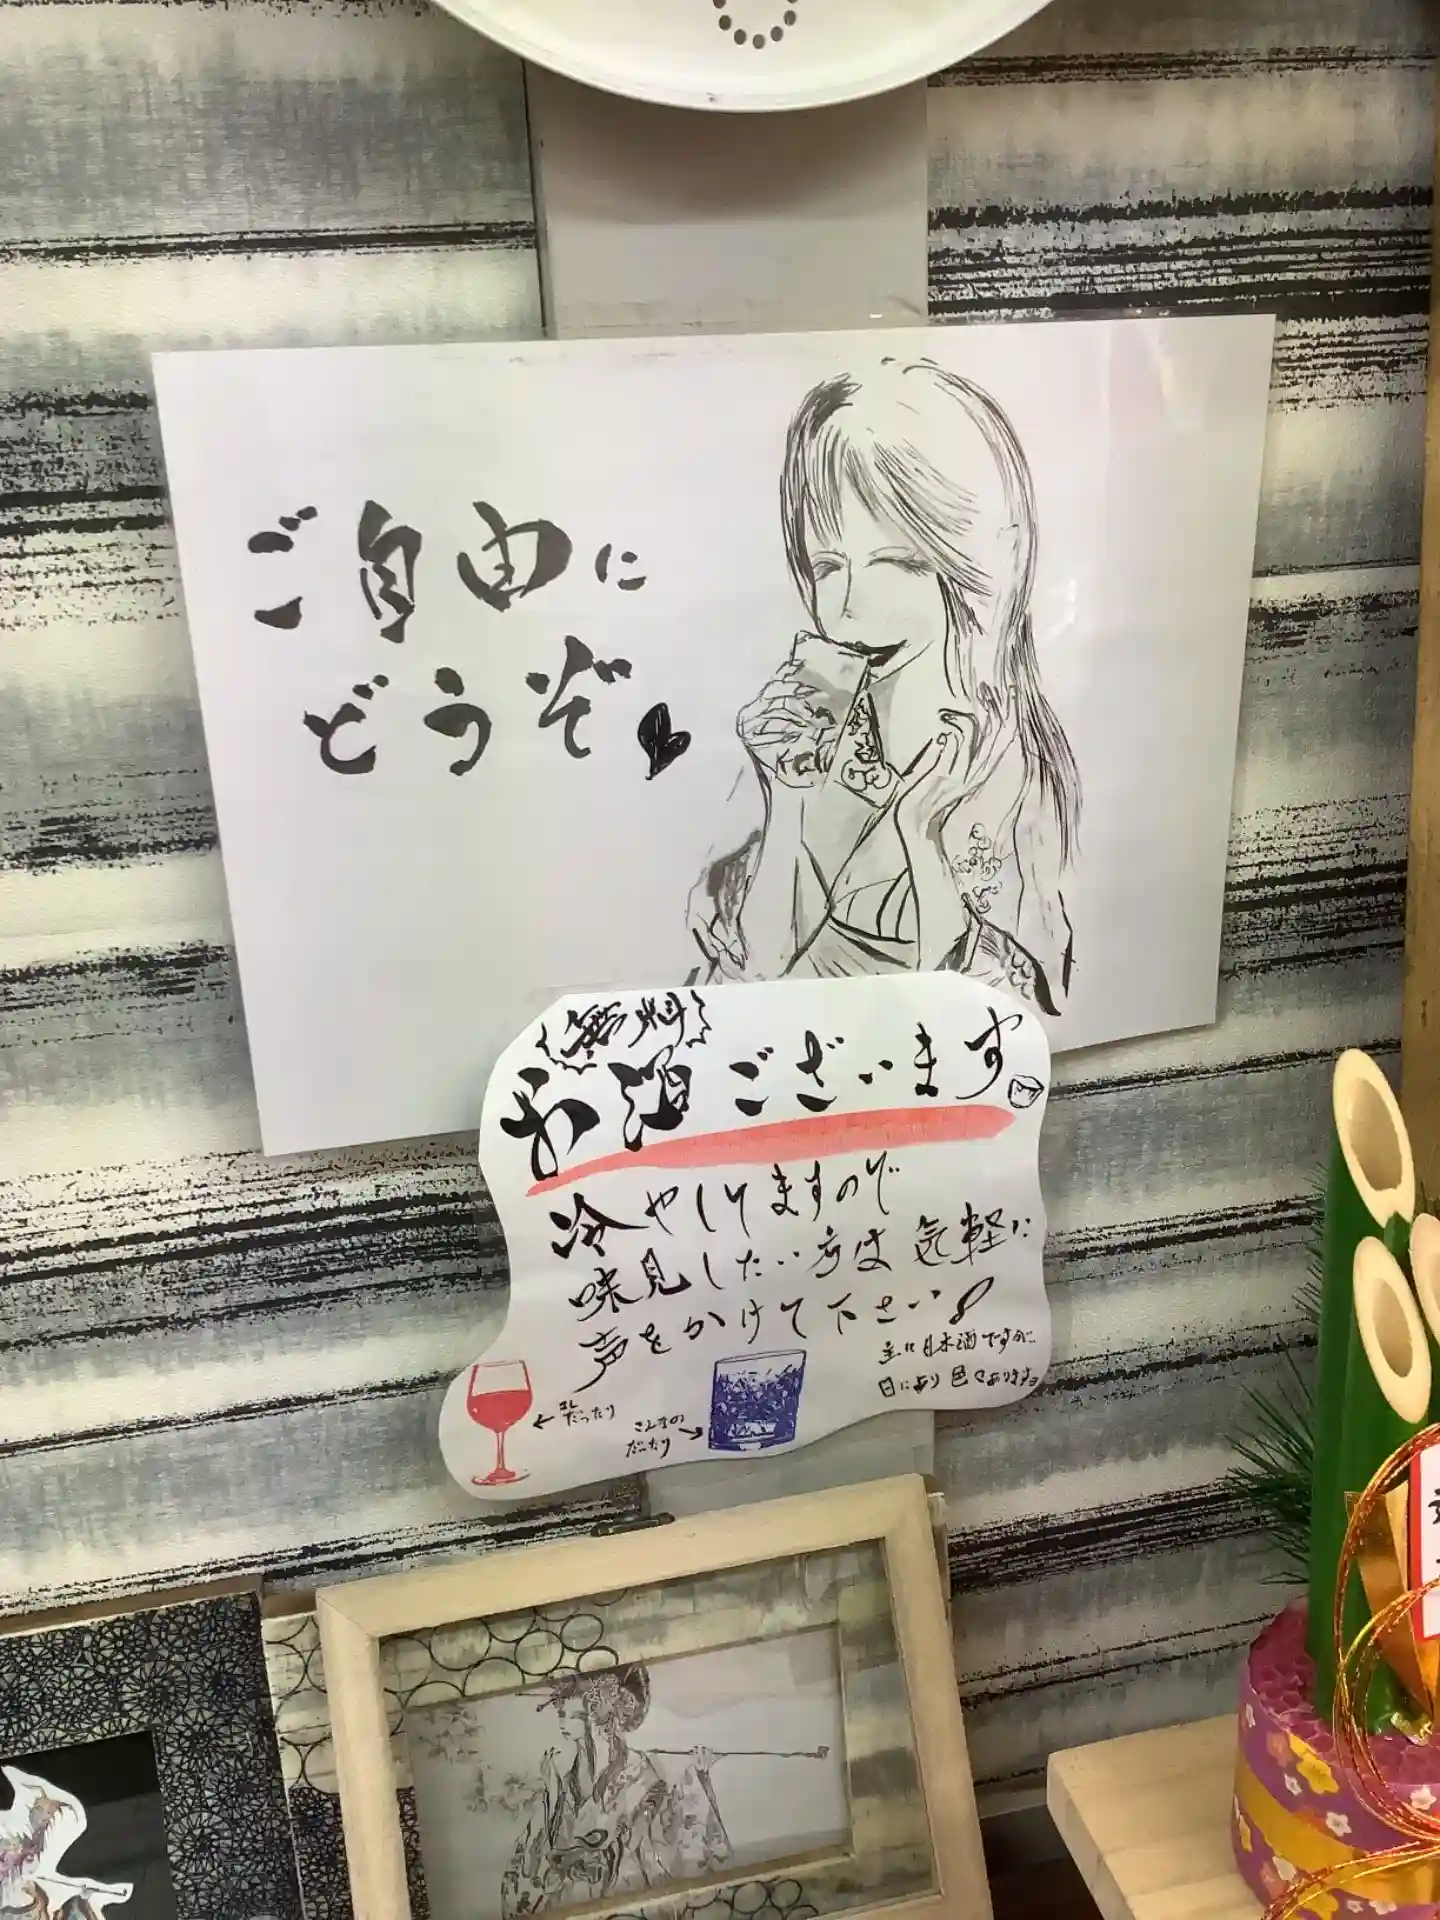 ご自由に
どうぞ
無料
お酒ございます
冷やしてますので
味見したい方は気軽に
声をかけて下さい!
主に日本酒ですが…
日により色々あります
コレだったり
こんなの
だったり